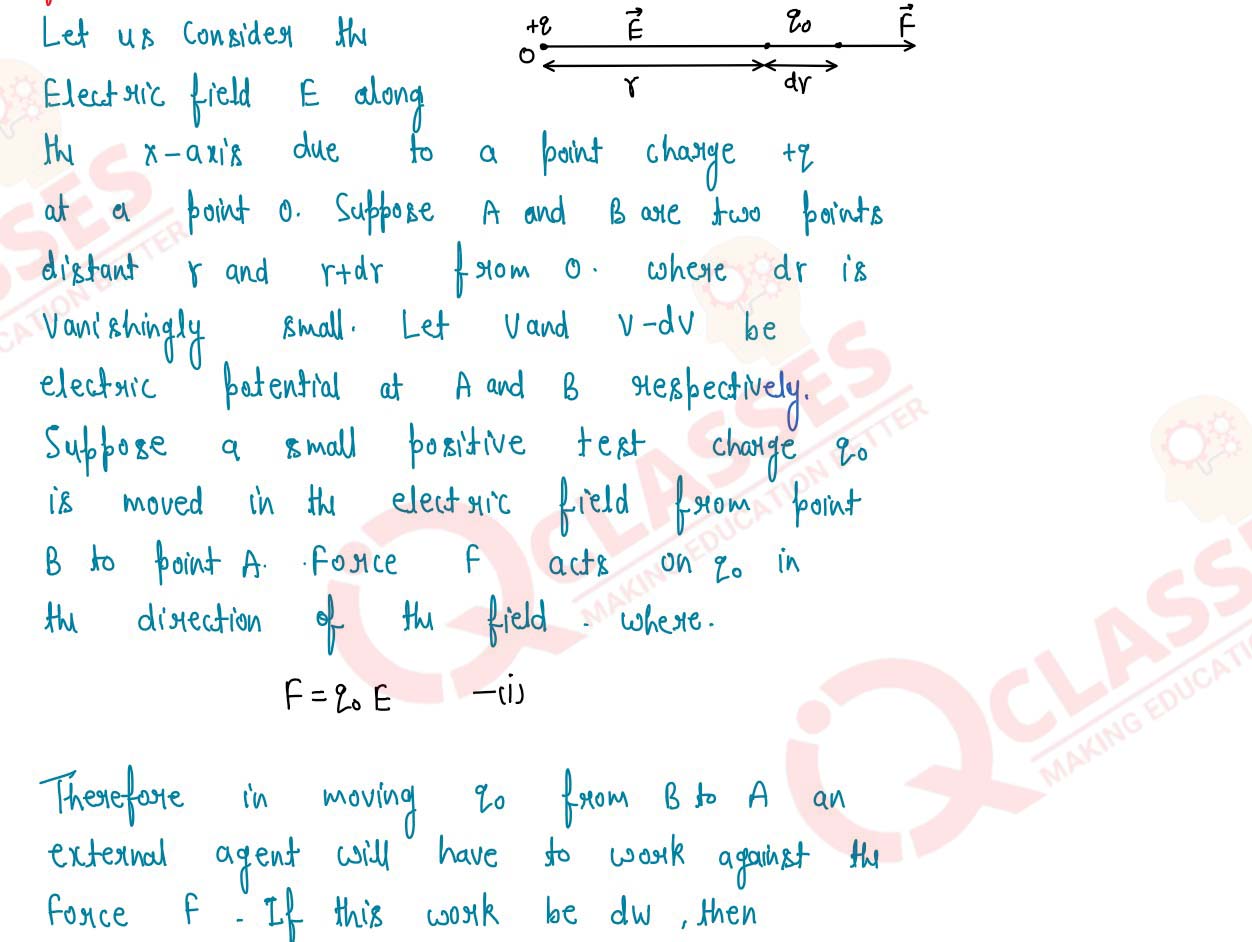 Let us Consider the
+q E q₀ F
O
r dr
Electric field E along
the x-axis due to a point charge +q
at a point O. Suppose A and B are two points
distant r and r+dr from O. where dr is
Vanishingly small. Let V and V-dV be
electric potential at A and B respectively.
Suppose a small positive test charge q₀
is moved in the electric field from point
B to point A. Force F acts on q₀ in
the direction of the field. where.
F = q₀ E -(i)
Therefore in moving q₀ from B to A an
external agent will have to work against the
force F. If this work be dw, then
IQ CLASSES
MAKING EDUCATION BETTER